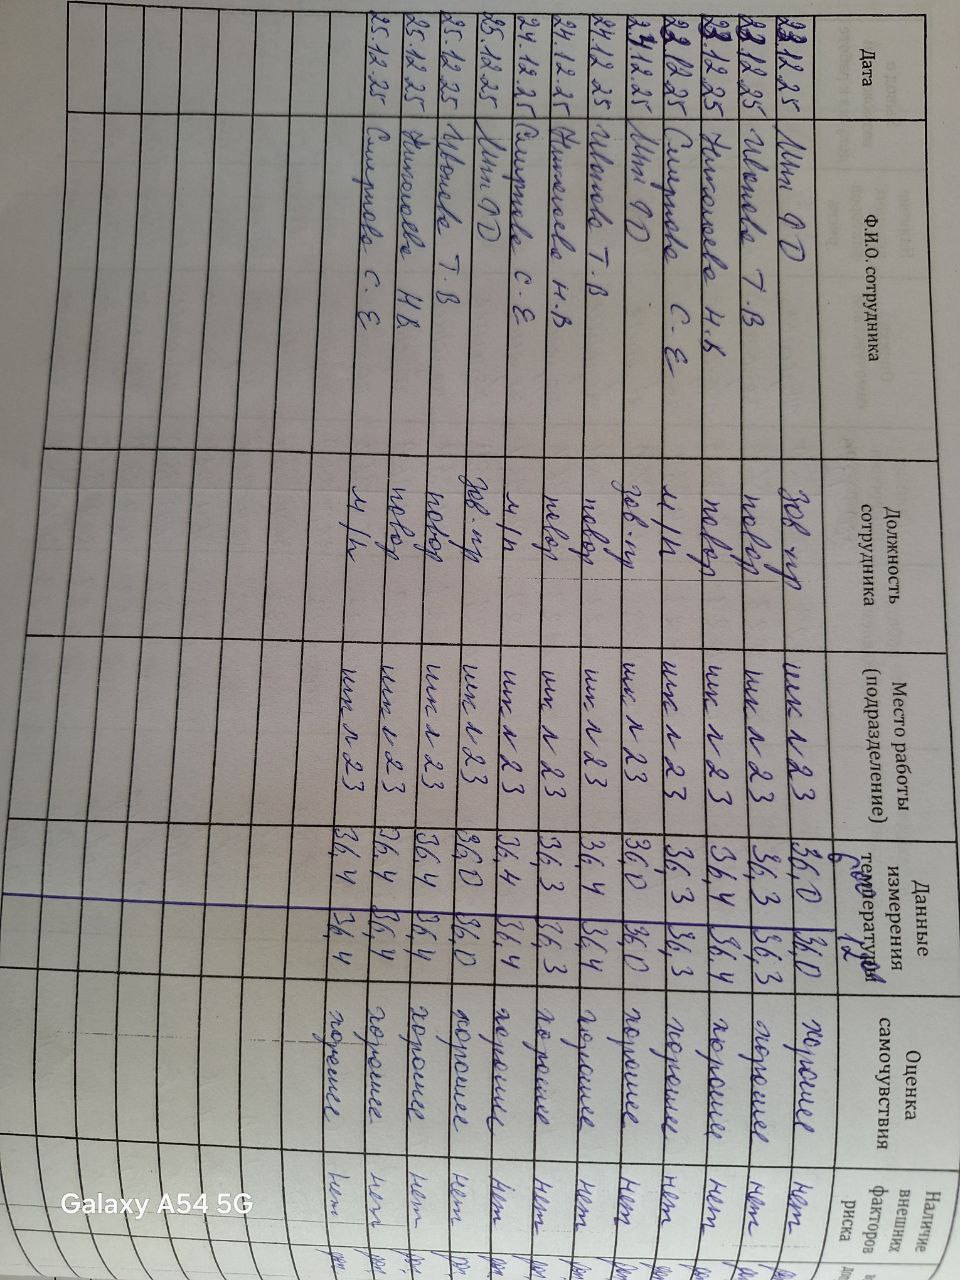 Дата Ф.И.О. сотрудника Должность сотрудника Место работы (подразделение) Данные измерения температуры Оценка самочувствия Наличие внешних факторов риска
23.12.25 Зав. пр шк л 23 36,0 36,0 хорошее нет
23.12.25 Иванова Т.В повар шк л 23 36,3 36,3 хорошее нет
23.12.25 Николаева Н.В повар шк л 23 36,4 36,4 хорошее нет
23.12.25 Смирнова С.Е м/п шк л 23 36,3 36,3 хорошее нет
24.12.25 Зав. пр шк л 23 36,0 36,0 хорошее нет
24.12.25 Иванова Т.В повар шк л 23 36,4 36,4 хорошее нет
24.12.25 Николаева Н.В повар шк л 23 36,3 36,3 хорошее нет
24.12.25 Смирнова С.Е м/п шк л 23 36,4 36,4 хорошее нет
25.12.25 Зав. пр шк л 23 36,0 36,0 хорошее нет
25.12.25 Иванова Т.В повар шк л 23 36,4 36,4 хорошее нет
25.12.25 Николаева Н В повар шк л 23 36,4 36,4 хорошее нет
25.12.25 Смирнова С.Е м/п шк л 23 36,4 36,4 хорошее нет
Galaxy A54 5G